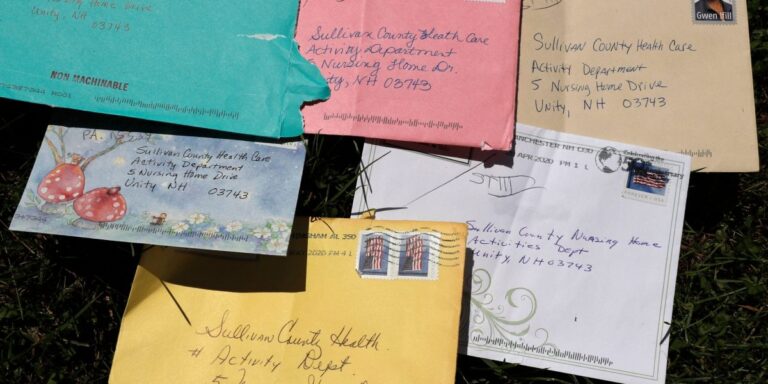 Nursing Home Drive
Unity, NH
NON MACHINABLE
Sullivan County Heath Care
Activity Department
5 Nursing Home Dr.
ity, NH 03743
Gwen Ifill
Sullivan County Health Care
Activity Department
5 Nursing Home Drive
Unity, NH 03743
PA.
Sullivan County Health Care
Activity Department
5 Nursing Home Drive
Unity NH
03743
ANCHESTER NH 030
APR 2020 PM 1 L
50th
Celebrating the
Sullivan County Nursing Home
Activities Dept
Unity, NH 03743
NGHAM AL 350
2020 PM 4 L
Sullivan County Health
# Activity Dept
5